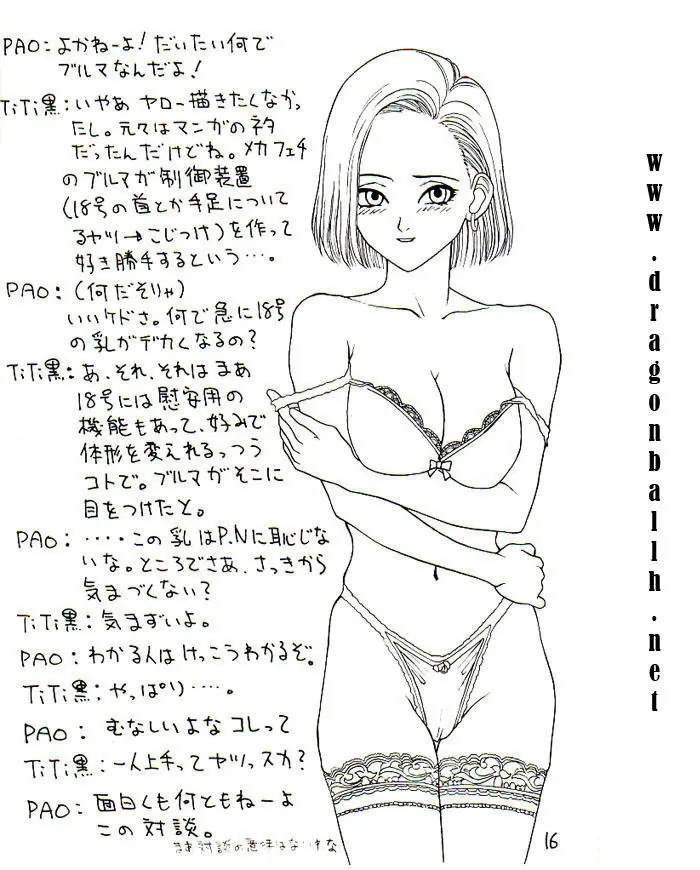 PAO：よかねーよ！だいたい何で
ブルマなんだよ！
TiTi黒：いやあ ヤロー描きたくなかっ
たし。元々はマンガのネタ
だったんだけどね。メカフェチ
のブルマが制御装置
（18号の首とか手足について
るヤツ→こじつけ）を作って
好き勝手するという…。
PAO：（何だそりゃ）
いいケドさ。何で急に18号
の乳がデカくなるの？
TiTi黒：あ、それ、それはまあ
18号には慰安用の
機能もあって、好みで
体形を変えれるっつう
コトで。ブルマがそこに
目をつけたと。
PAO：‥‥この乳はP.Nに恥じな
いな。ところでさあ、さっきから
気まづくない？
TiTi黒：気まずいよ。
PAO：わかる人はけっこうわかるぞ。
TiTi黒：やっぱり‥‥。
PAO：むなしいよなコレって
TiTi黒：一人上手ってヤツっスか？
PAO：面白くも何ともねーよ
この対談。
まあ対談の意味はないわな
16
www.dragonballh.net